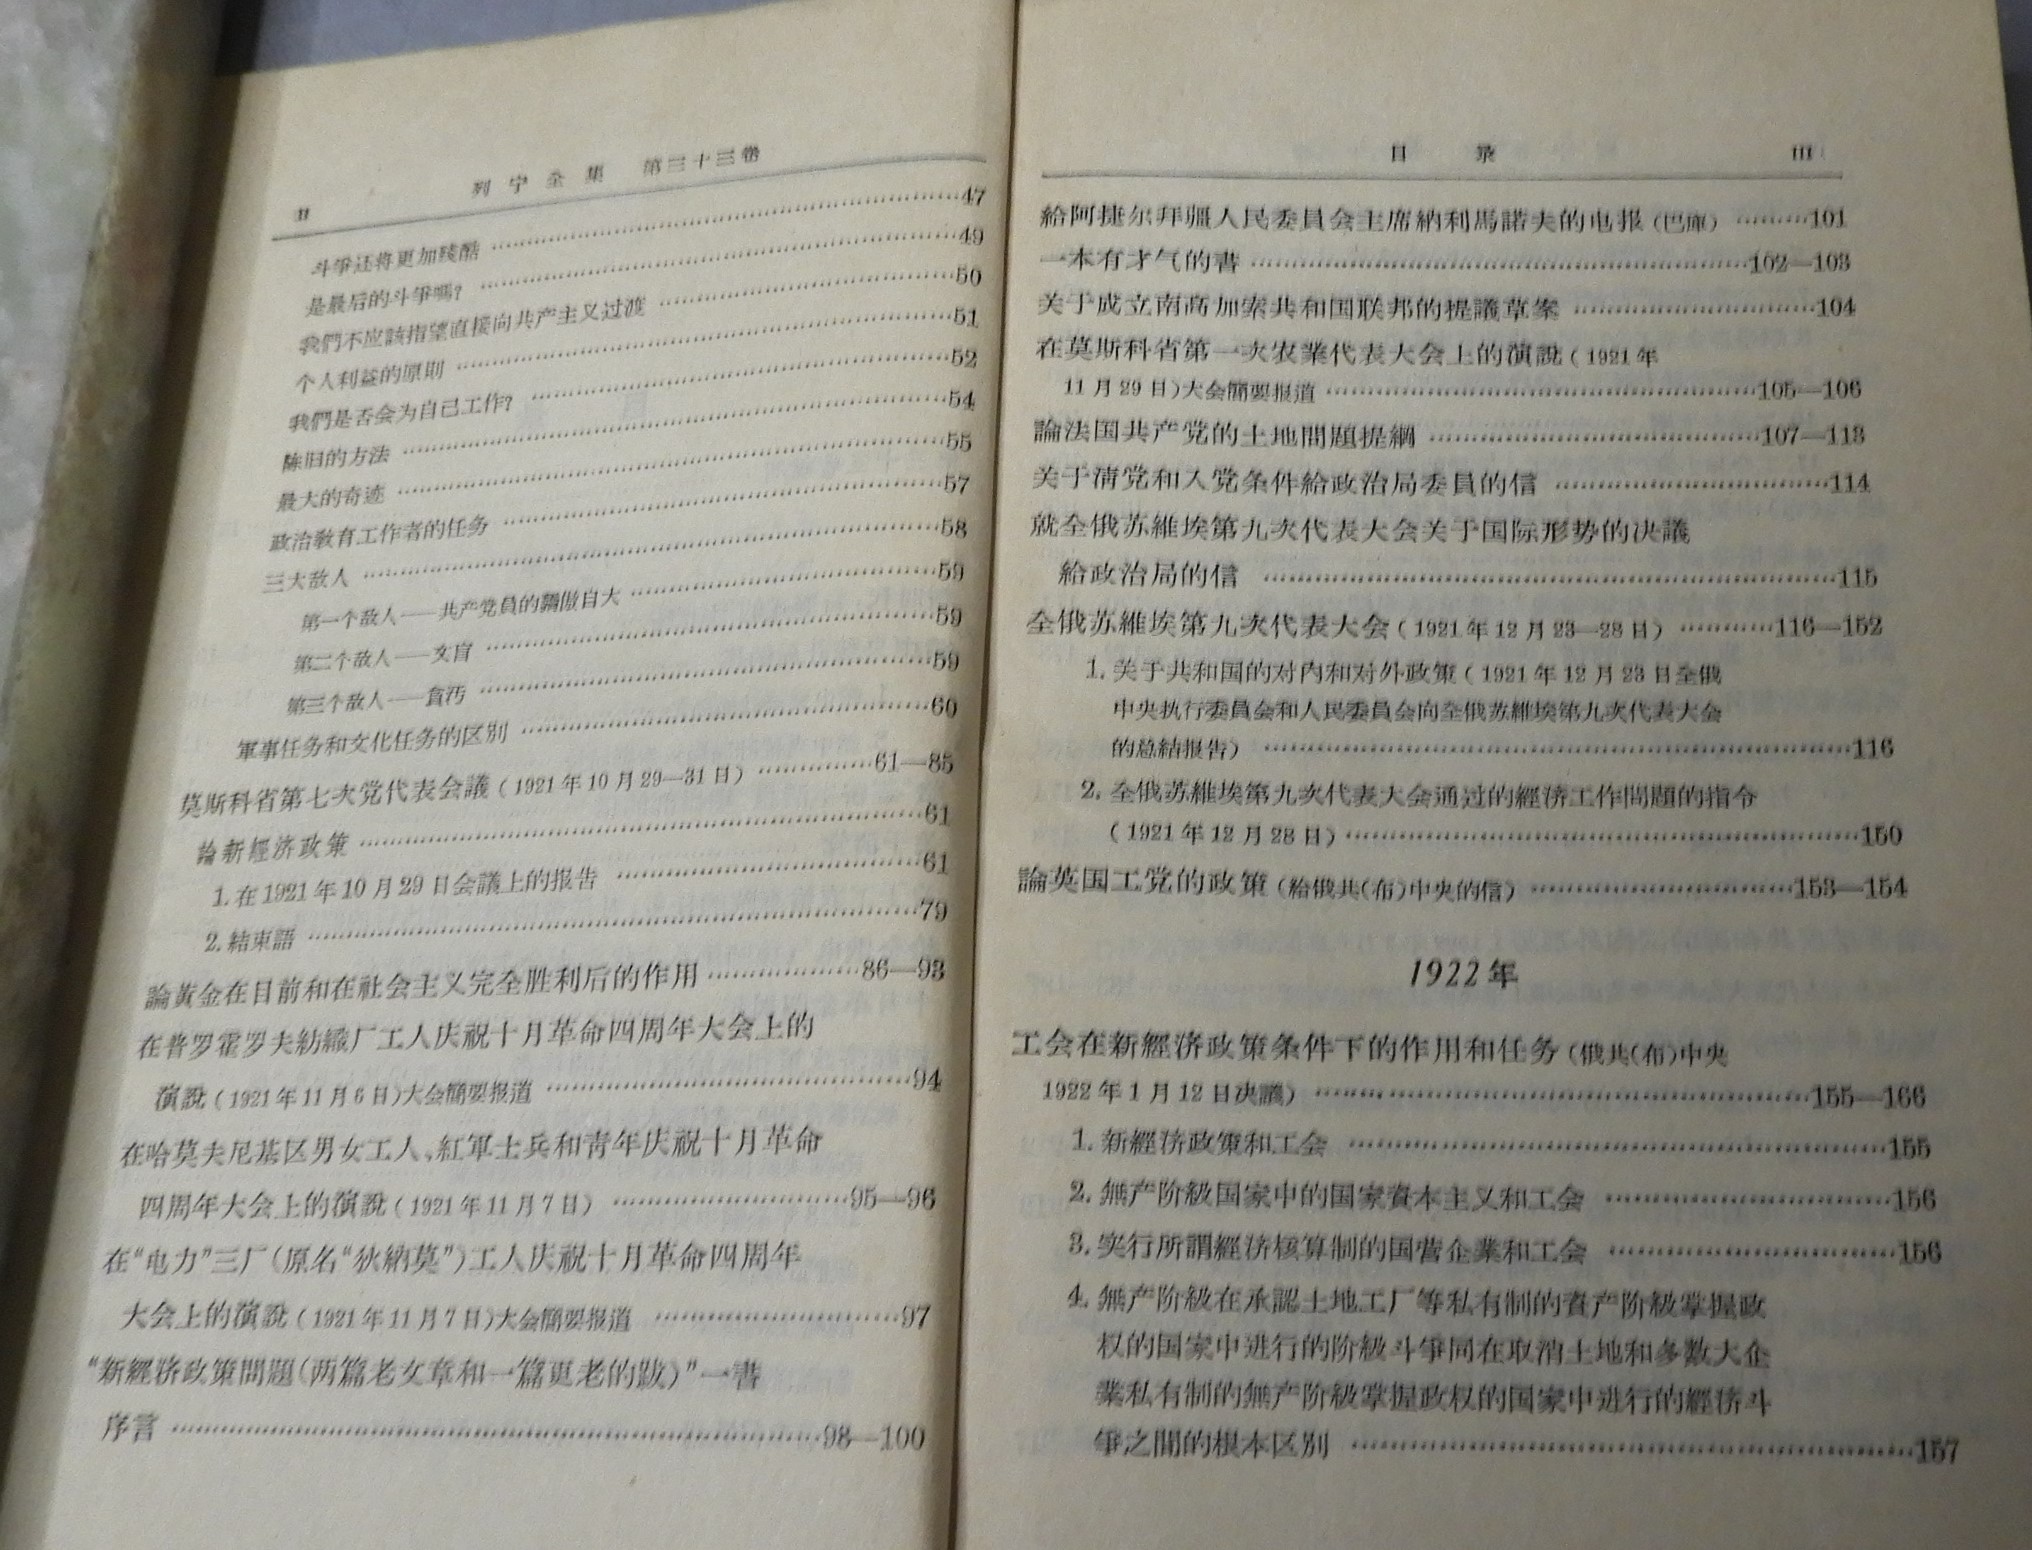 II 列宁全集 第三十三卷
斗爭还将更加残酷 ……47
是最后的斗爭嗎? ……49
我們不应該指望直接向共产主义过渡 ……50
个人利益的原則 ……51
我們是否会为自己工作? ……52
陈旧的方法 ……54
最大的奇迹 ……55
政治教育工作者的任务 ……57
三大敌人 ……58
第一个敌人——共产党員的驕傲自大 ……59
第二个敌人——文盲 ……59
第三个敌人——貪汚 ……59
軍事任务和文化任务的区別 ……60
莫斯科省第七次党代表会議(1921年10月29—31日) ……61—85
論新經济政策 ……61
1. 在1921年10月29日会議上的报告 ……61
2. 結束語 ……79
論黃金在目前和在社会主义完全胜利后的作用 ……86—93
在普罗霍罗夫紡織厂工人庆祝十月革命四周年大会上的
演說(1921年11月6日)大会簡要报道 ……94
在哈莫夫尼基区男女工人、紅軍士兵和青年庆祝十月革命
四周年大会上的演說(1921年11月7日) ……95—96
在“电力”三厂(原名“狄納莫”)工人庆祝十月革命四周年
大会上的演說(1921年11月7日)大会簡要报道 ……97
“新經济政策問題(两篇老文章和一篇更老的跋)”一書
序言 ……98—100
目 录 III
給阿捷尔拜疆人民委員会主席納利馬諾夫的电报(巴庫) ……101
一本有才气的書 ……102—103
关于成立南高加索共和国联邦的提議草案 ……104
在莫斯科省第一次农業代表大会上的演說(1921年
11月29日)大会簡要报道 ……105—106
論法国共产党的土地問題提綱 ……107—113
关于清党和入党条件給政治局委員的信 ……114
就全俄苏維埃第九次代表大会关于国际形势的决議
給政治局的信 ……115
全俄苏維埃第九次代表大会(1921年12月23—28日) ……116—152
1. 关于共和国的对内和对外政策(1921年12月23日全俄
中央执行委員会和人民委員会向全俄苏維埃第九次代表大会
的总結报告) ……116
2. 全俄苏維埃第九次代表大会通过的經济工作問題的指令
(1921年12月28日) ……150
論英国工党的政策(給俄共(布)中央的信) ……153—154
1922年
工会在新經济政策条件下的作用和任务(俄共(布)中央
1922年1月12日决議) ……155—166
1. 新經济政策和工会 ……155
2. 無产阶級国家中的国家資本主义和工会 ……156
3. 实行所謂經济核算制的国营企業和工会 ……156
4. 無产阶級在承認土地工厂等私有制的資产阶級掌握政
权的国家中进行的阶級斗爭同在取消土地和多数大企
業私有制的無产阶級掌握政权的国家中进行的經济斗
爭之間的根本区別 ……157